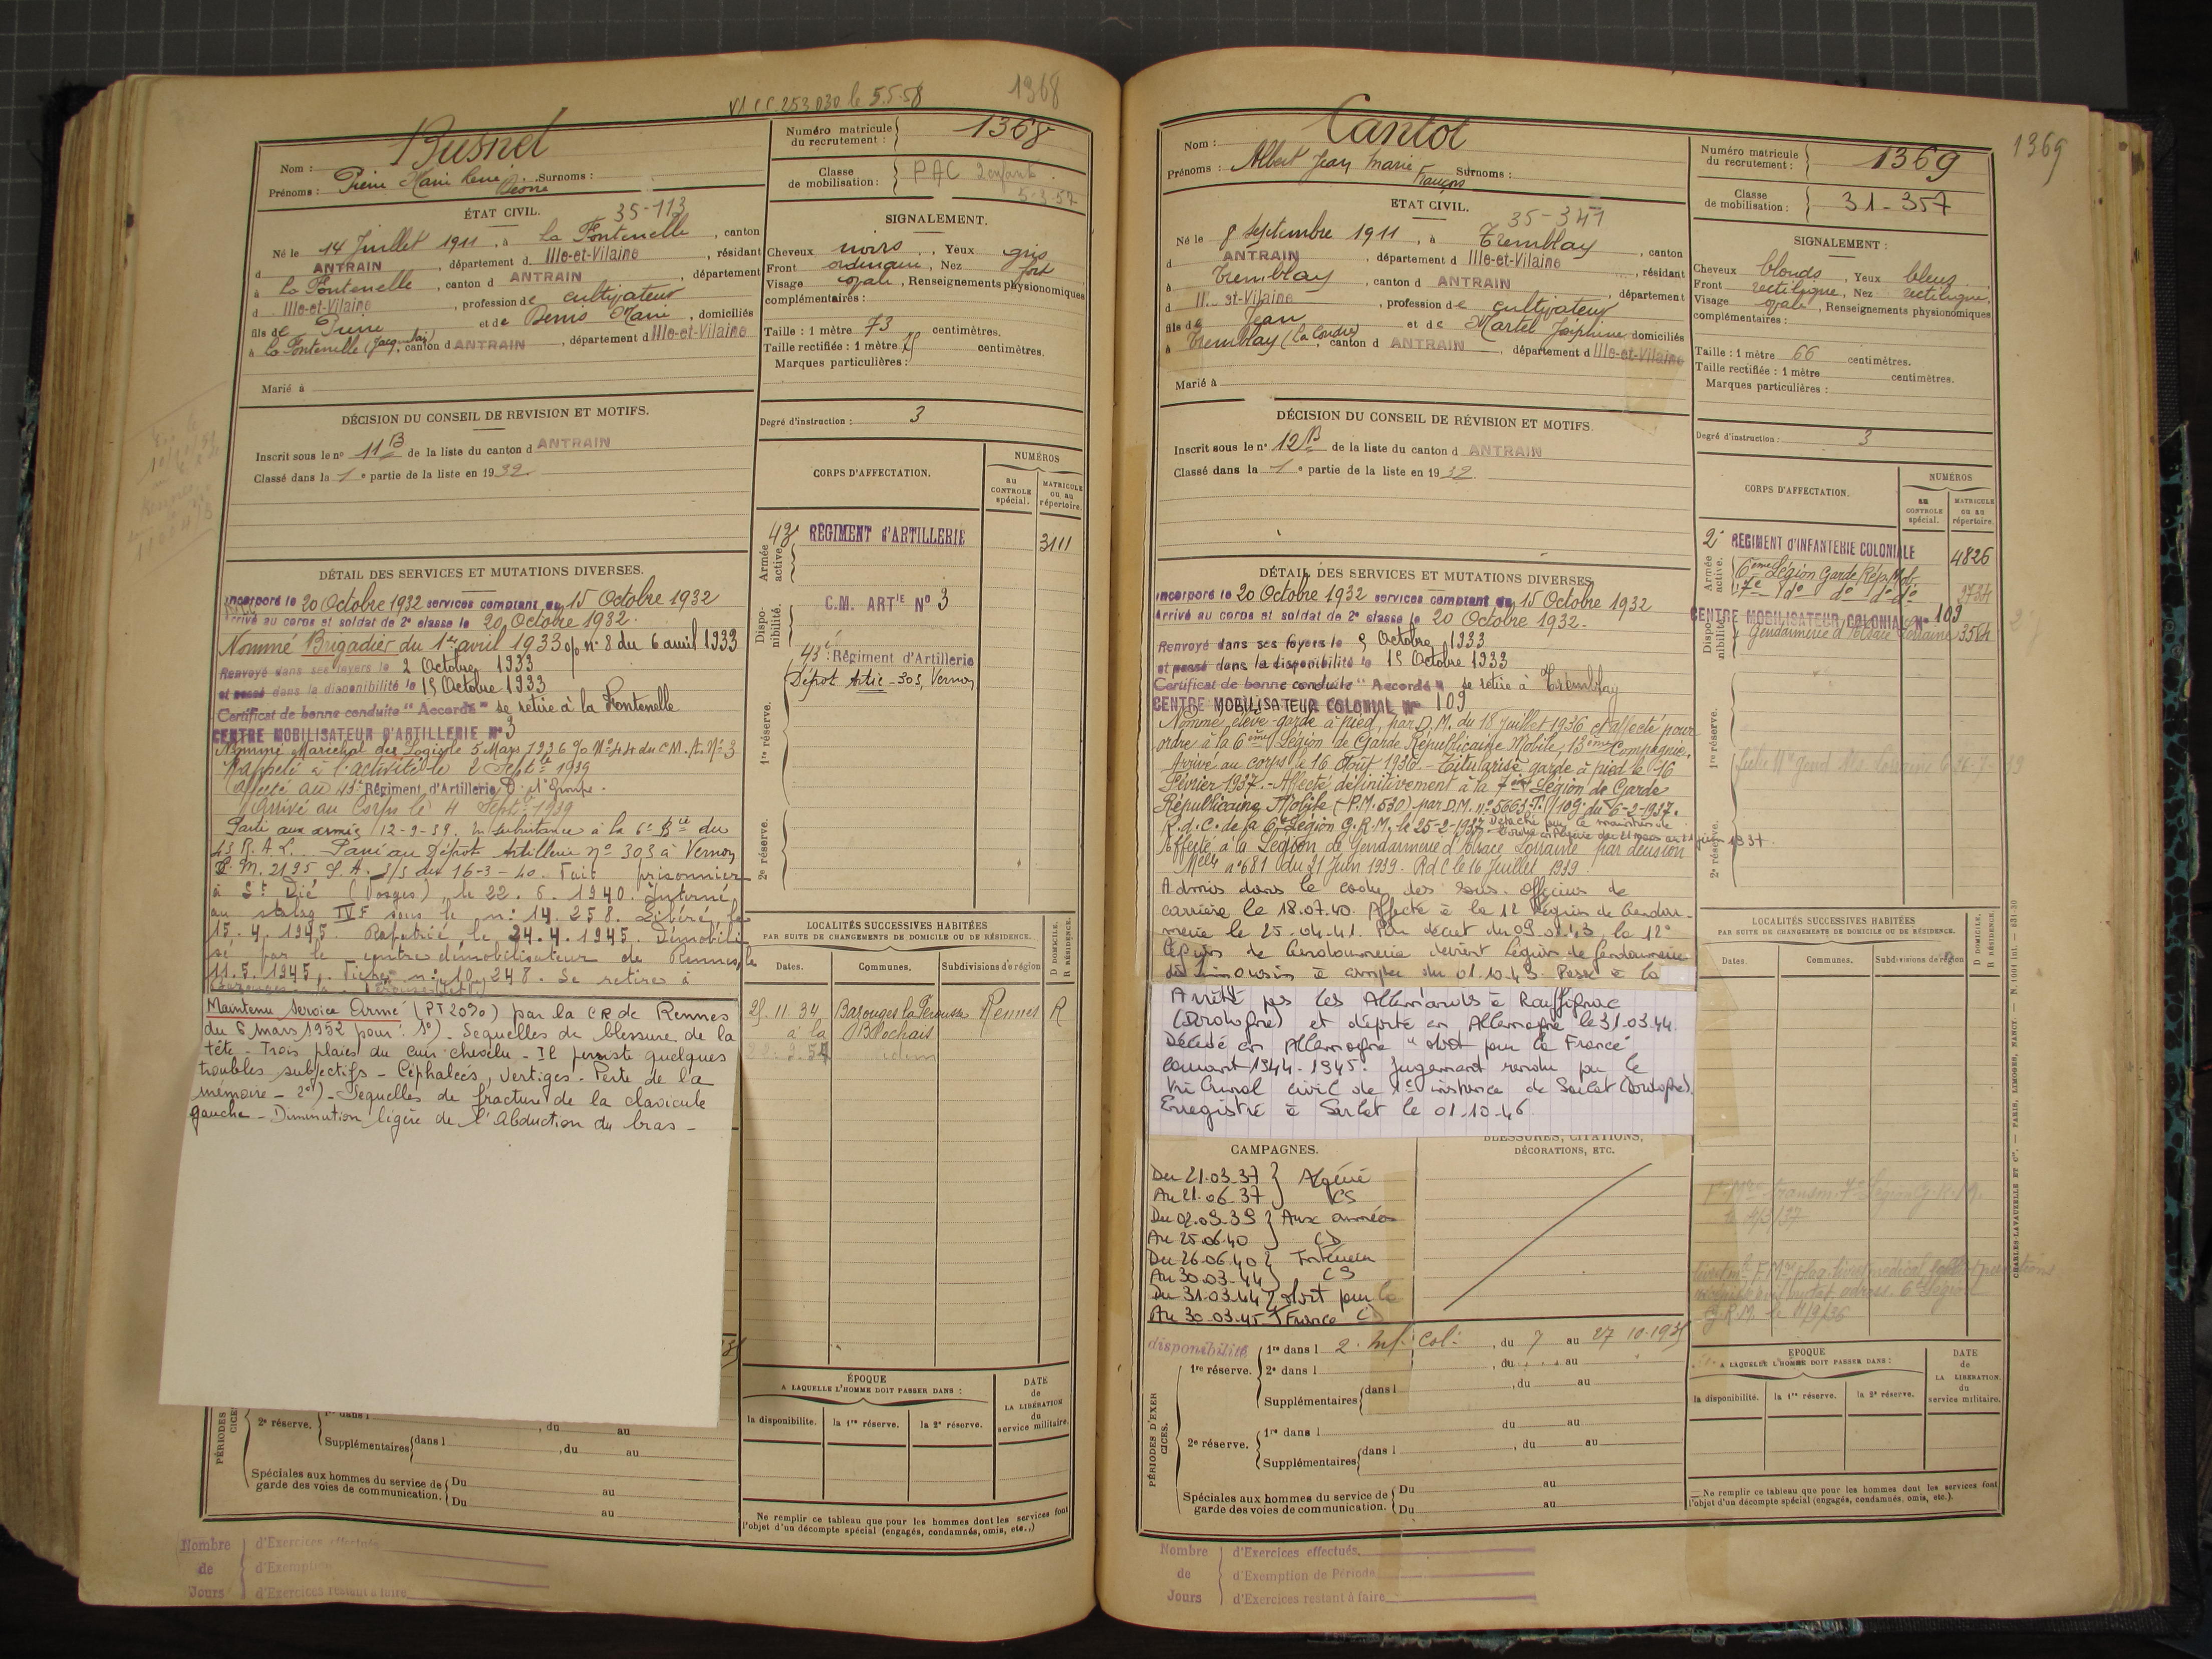 V1 CC.253.030 le 5.5.58
1368
Busnel
Nom :
Prénoms : Pierre Marie René Surnoms :
ÉTAT CIVIL. 35-113
Né le 14 Juillet 1911, à La Fontenelle, canton
d ANTRAIN, département d Ille-et-Vilaine, résidant
à La Fontenelle, canton d ANTRAIN, département
d Ille-et-Vilaine, profession de cultivateur
fils de Pierre et de Denis Marie, domiciliés
à La Fontenelle, canton d ANTRAIN, département d Ille-et-Vilaine
Marié à
DÉCISION DU CONSEIL DE REVISION ET MOTIFS.
Inscrit sous le n° 11 B de la liste du canton d ANTRAIN
Classé dans la 1e partie de la liste en 1932
DÉTAIL DES SERVICES ET MUTATIONS DIVERSES.
Incorporé le 20 Octobre 1932 services comptant du 15 Octobre 1932
Arrivé au corps et soldat de 2e classe le 20 Octobre 1932.
Nommé Brigadier du 1er avril 1933 o/ n° 8 du 6 avril 1933
Renvoyé dans ses foyers le 2 Octobre 1933
et passé dans la disponibilité le 15 Octobre 1933
Certificat de bonne conduite "Accordé" se retire à la Fontenelle
CENTRE MOBILISATEUR D'ARTILLERIE N° 3
Nommé Maréchal des Logis le 5 Mars 1936 o/o N° 44 du C.M.A. N° 3
Rappelé à l'activité le 2 Septbre 1939
Affecté au 43e Régiment d'Artillerie D. 1er Groupe.
Arrivé au Corps le 4 Septe 1939
Parti aux armées 12-9-39. En subsistance à la 6e Bie du
43 R.A.L. Passé au Dépôt Artillerie n° 303 à Vernon
D.M. 2195 S.A. 3/S du 16-3-40. Fait prisonnier
à St Dié (Vosges), le 22.6.1940. Interné
au stalag IV F sous le n: 14.258. Libéré le
15.4.1945. Rapatrié le 24.4.1945. Démobili-
sé par le centre démobilisateur de Rennes, le
11.5.1945. Fiche n: 10.248. Se retire à
Maintenu Service Armé (PT 20%) par la CR de Rennes
du 6 mars 1952 pour : 1°) - Sequelles de blessure de la
tête - Trois plaies du cuir chevelu - Il persiste quelques
troubles subjectifs - Céphalées, Vertiges - Perte de la
mémoire - 2°) - Sequelles de fracture de la clavicule
gauche - Diminution légère de l'Abduction du bras -
PÉRIODES D'EXERCICES.
2e réserve. 1re dans l , du au
Supplémentaires dans l , du au
Spéciales aux hommes du service de garde des voies de communication. Du au
Du au
Nombre de Jours
d'Exercices effectués
d'Exemption
d'Exercices restant à faire
Numéro matricule du recrutement : 1368
Classe de mobilisation : PAC 2 enfants.
5-3-57
SIGNALEMENT.
Cheveux noirs, Yeux gris
Front ordinaire, Nez fort
Visage ovale, Renseignements physionomiques
complémentaires :
Taille : 1 mètre 73 centimètres.
Taille rectifiée : 1 mètre 75 centimètres.
Marques particulières :
Degré d'instruction : 3
CORPS D'AFFECTATION.
NUMÉROS
au CONTROLE spécial.
MATRICULE ou au répertoire.
Armée active.
43e RÉGIMENT d'ARTILLERIE 3111
Disponibilité.
C.M. ARTie N° 3
43e Régiment d'Artillerie
Dépôt Artie - 303, Vernon
1re réserve.
2e réserve.
LOCALITÉS SUCCESSIVES HABITÉES
PAR SUITE DE CHANGEMENTS DE DOMICILE OU DE RÉSIDENCE.
D DOMICILE. R RÉSIDENCE.
Dates. Communes. Subdivisions de région
25.11.34 Bazouges la Pérouse Rennes R
à la Bochais
ÉPOQUE
A LAQUELLE L'HOMME DOIT PASSER DANS :
DATE de LA LIBÉRATION du service militaire.
la disponibilité. la 1re réserve. la 2e réserve.
Ne remplir ce tableau que pour les hommes dont les services font
l'objet d'un décompte spécial (engagés, condamnés, omis, etc..)
1369
Cantot
Nom :
Prénoms : Albert Jean Marie François Surnoms :
ETAT CIVIL. 35-341
Né le 8 septembre 1911, à Tremblay, canton
d ANTRAIN, département d Ille-et-Vilaine, résidant
à Tremblay, canton d ANTRAIN, département
d Il. et-Vilaine, profession de cultivateur
fils de Jean et de Martel Joséphine domiciliés
à Tremblay (La Coudre) canton d ANTRAIN, département d Ille-et-Vilaine
Marié à
DÉCISION DU CONSEIL DE RÉVISION ET MOTIFS.
Inscrit sous le n° 12 B de la liste du canton d ANTRAIN
Classé dans la 1e partie de la liste en 1932
DÉTAIL DES SERVICES ET MUTATIONS DIVERSES
Incorporé le 20 Octobre 1932 services comptant du 15 Octobre 1932
Arrivé au corps et soldat de 2e classe le 20 Octobre 1932.
Renvoyé dans ses foyers le 5 Octobre 1933
et passé dans la disponibilité le 15 Octobre 1933
Certificat de bonne conduite "Accordé" se retire à Tremblay
CENTRE MOBILISATEUR COLONIAL N° 109
Nommé élève-garde à pied, par D.M. du 18 Juillet 1936 et affecté pour
ordre à la 6ème Légion de Garde Républicaine Mobile, 13ème Compagnie.
Arrivé au corps le 16 Août 1936 - Titularisé garde à pied le 16
Février 1937. - Affecté définitivement à la 7ème Légion de Garde
Républicaine Mobile (P.M. 530) par D.M. n° 5663-T. /10G. du 6-2-1937.
R.d.C. de la 6e Légion G.R.M. le 25-2-1937
Affecté à la Légion de Gendarmerie d'Alsace Lorraine par décision
Melle n° 681 du 21 Juin 1939. RdC le 16 Juillet 1939.
Admis dans le cadre des sous-officiers de
carrière le 18.07.40. Affecté à la 12 Légion de Gendar-
merie le 25-04-41. Par décret du 09.01.43, la 12e
Légion de Gendarmerie devient Légion de Gendarmerie
du Limousin à compter du 01.10.43. Passé à la
Arrêté par les Allemands à Rouffignac
(Dordogne) et déporté en Allemagne le 31.03.44.
Décédé en Allemagne "Mort pour la France"
courant 1944-1945. Jugement rendu par le
tribunal civil de 1e instance de Sarlat (Dordogne).
Enregistré à Sarlat le 01-10-46
CAMPAGNES.
BLESSURES, CITATIONS, DÉCORATIONS, ETC.
Du 21.03.37 Algérie
Au 21.06.37 CS
Du 02.09.39 Aux armées
Au 25.06.40 CD
Du 26.06.40 Intérieur
Au 30.03.44 CS
Du 31.03.44 Mort pour la
Au 30.03.45 France
disponibilité
PÉRIODES D'EXERCICES.
1re réserve. 1re dans l 2e Inf. Col. , du 7 au 27 10-1935
2e dans l , du au
Supplémentaires dans l , du au
du au
2e réserve. 1re dans l du au
Supplémentaires dans l , du au
Spéciales aux hommes du service de garde des voies de communication. Du au
Du au
Nombre de Jours
d'Exercices effectués
d'Exemption de Période
d'Exercices restant à faire
Numéro matricule du recrutement : 1369
Classe de mobilisation : 31-357
SIGNALEMENT :
Cheveux blonds, Yeux bleus
Front rectiligne, Nez rectiligne,
Visage ovale, Renseignements physionomiques
complémentaires :
Taille : 1 mètre 66 centimètres.
Taille rectifiée : 1 mètre centimètres.
Marques particulières :
Degré d'instruction : 3
CORPS D'AFFECTATION.
NUMÉROS
au CONTROLE spécial.
MATRICULE ou au répertoire.
Armée active.
2e RÉGIMENT d'INFANTERIE COLONIALE 4826
6ème Légion Garde Rép. Mob.
7e do do do do
CENTRE MOBILISATEUR COLONIAL N° 109
Disponibilité.
Gendarmerie d'Alsace Lorraine 3564
1re réserve.
2e réserve.
LOCALITÉS SUCCESSIVES HABITÉES
PAR SUITE DE CHANGEMENTS DE DOMICILE OU DE RÉSIDENCE.
D DOMICILE. R RÉSIDENCE.
Dates. Communes. Subdivisions de région
G.R.M. le 11/9/36
ÉPOQUE
A LAQUELLE L'HOMME DOIT PASSER DANS :
DATE de LA LIBÉRATION du service militaire.
la disponibilité. la 1re réserve. la 2e réserve.
Ne remplir ce tableau que pour les hommes dont les services font
l'objet d'un décompte spécial (engagés, condamnés, omis, etc.).
CHARLES-LAVAUZELLE ET Cie. — PARIS, LIMOGES, NANCY.